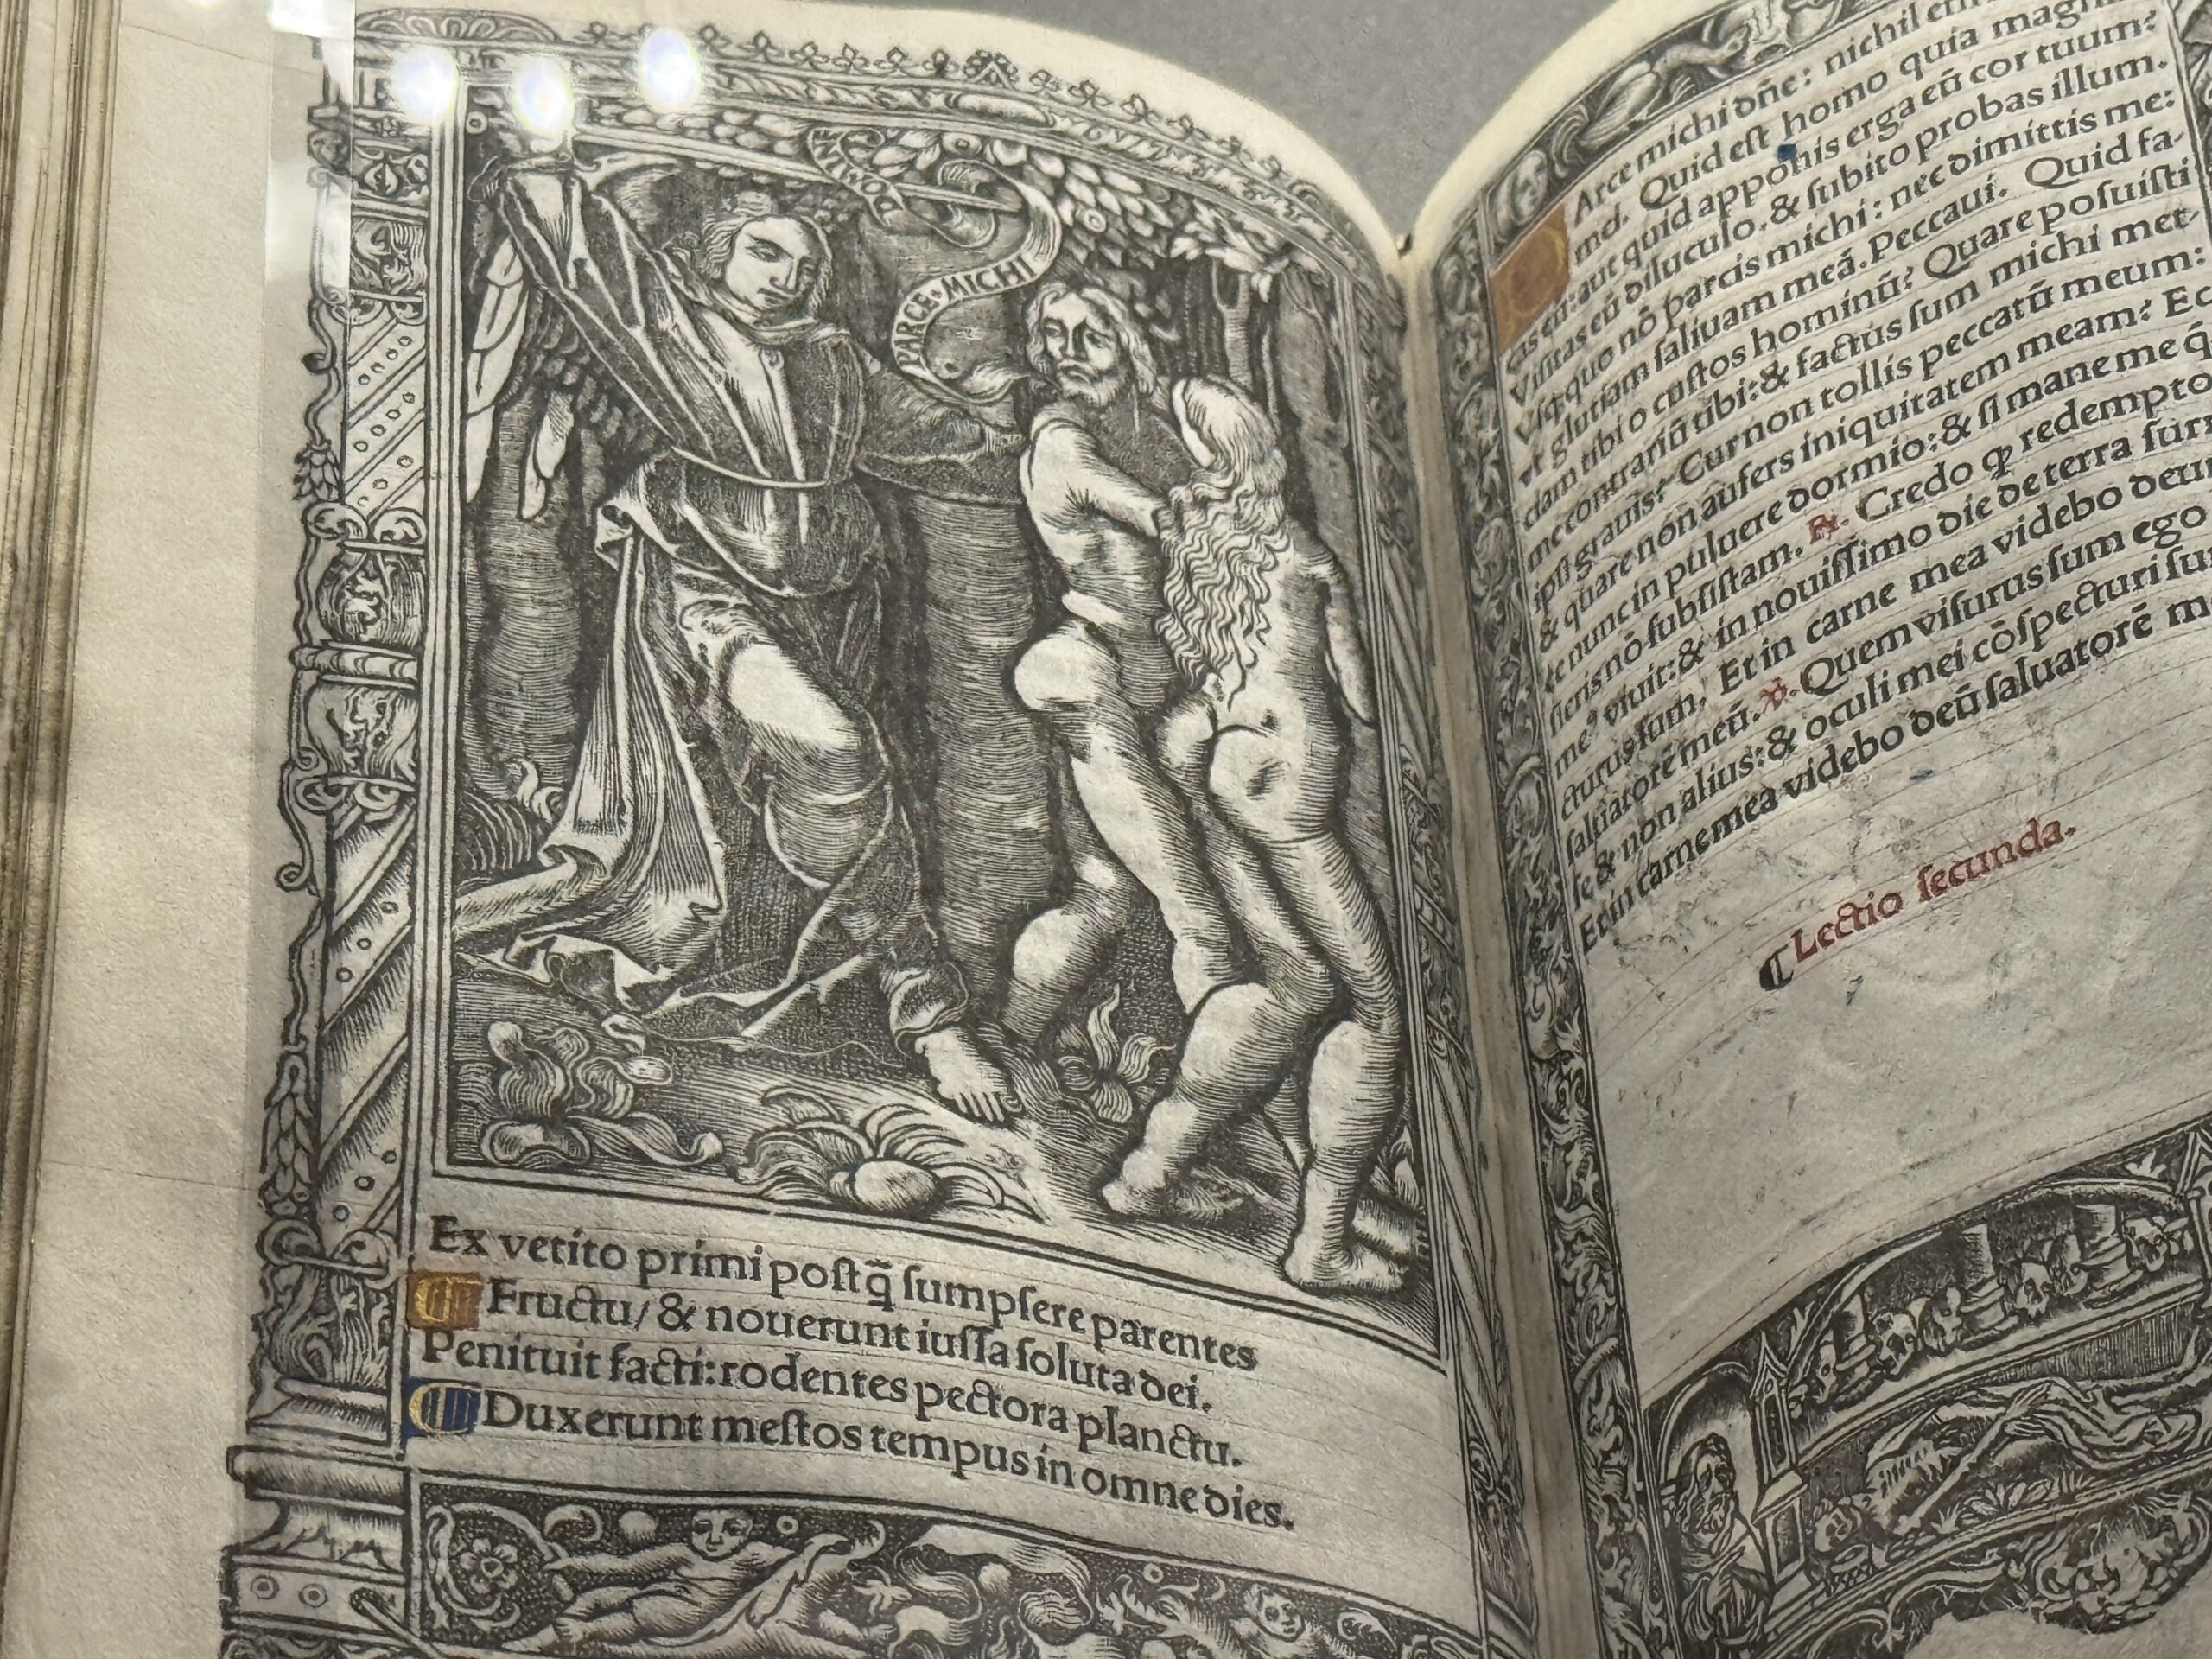 PARCE · MICHI
DOMINE
Ex vetito primi poſtq̄ ſumpſere parentes
Fructu/ & nouerunt iuſſa ſoluta dei.
Penituit facti: rodentes pectora planctu.
Duxerunt meſtos tempus in omne dies.
Arce michi dñe: nichil
md. Quid eſt homo quia magni
cas eū: aut quid apponis erga eū cor tuum?
Viſitas eū diluculo. & ſubito probas illum.
Vſq; quo nō parcis michi: nec dimittis me:
vt glutiam ſaliuam meā. Peccaui. Quid fa-
ciam tibi o cuſtos hominū? Quare poſuiſti
me contrariū tibi: & factus ſum michi met-
ipſi grauis? Cur non tollis peccatū meum:
& quare non aufers iniquitatem meam? Ec
ce nunc in puluere dormio: & ſi mane me q̄
ſieris nō ſubſiſtam. ℟. Credo ꝙ redempto
meꝰ viuit: & in nouiſſimo die de terra ſurr
cturus ſum. Et in carne mea videbo deu
ſaluatorē meū. ℣. Quem viſurus ſum ego
ſe & non alius: & oculi mei cōſpecturi ſu
Et in carne mea videbo deū ſaluatorē m
¶ Lectio ſecunda.